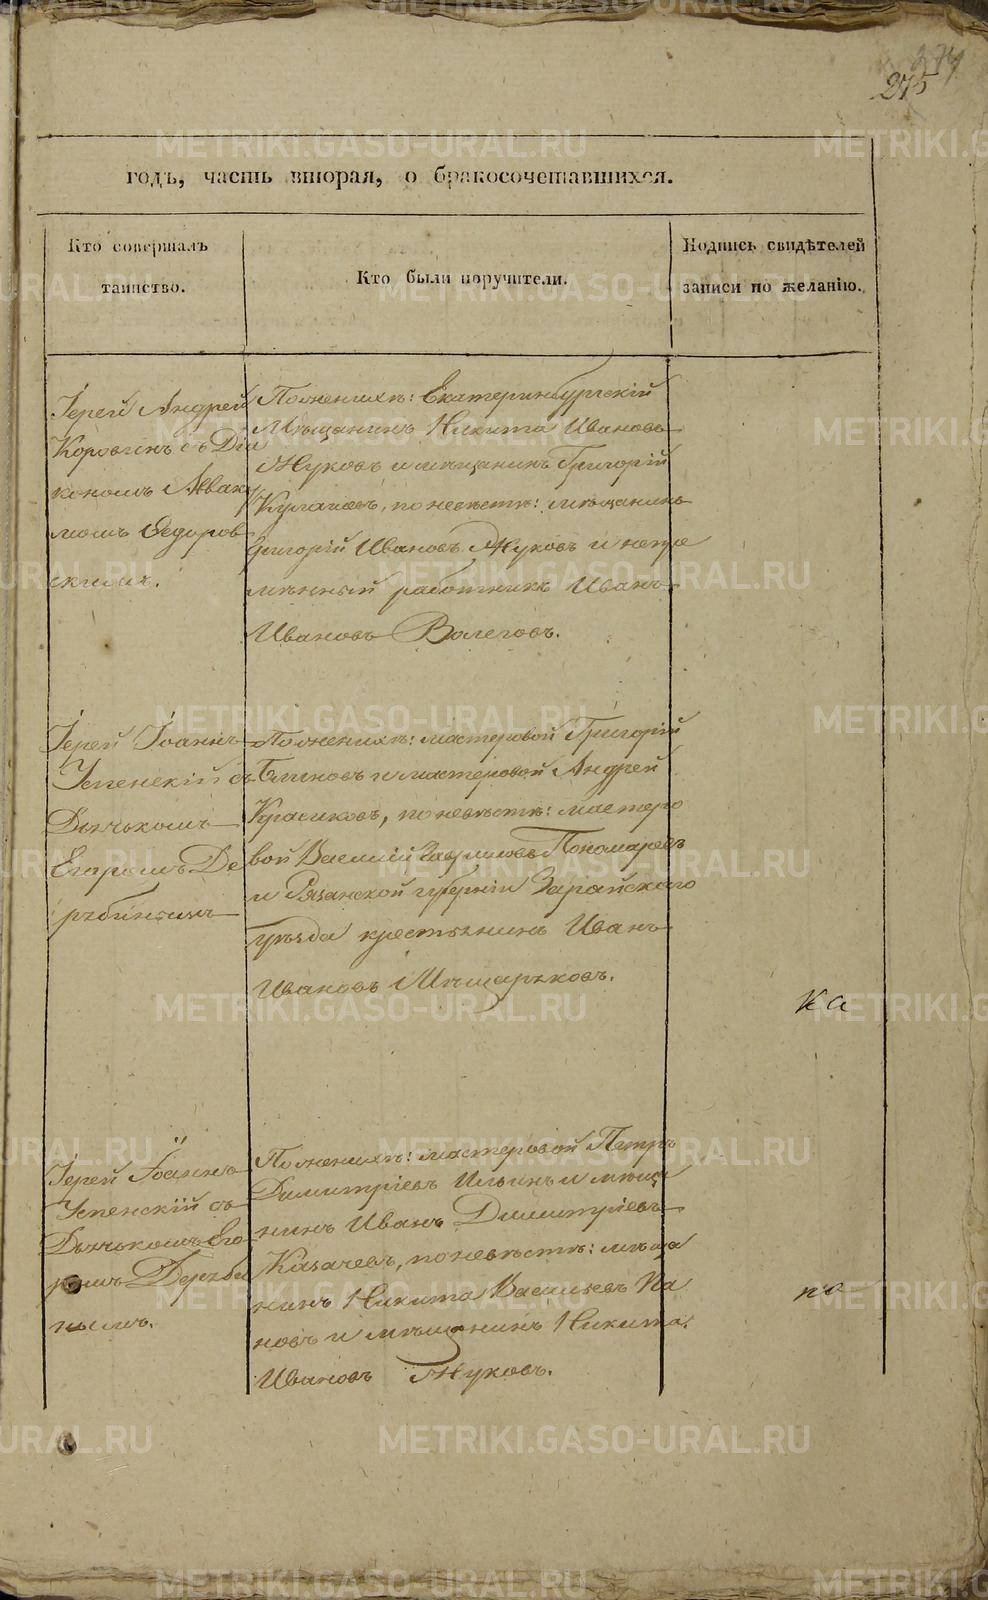 274
275
годъ, часть вторая, о бракосочетавшихся.
Кто совершалъ
таинство.
Кто были поручители.
Подпись свидѣтелей
записи по желанію.
Іерей Андрей
Коровинъ съ Діа
кономъ Авваку
момъ Федоров
скимъ.
По женихѣ: Екатеринбургскій
Мѣщанинъ Никита Ивановъ
Жуковъ и мѣщанинъ Григорій
по невѣстѣ: мѣщанинъ
Григорій Ивановъ Жуковъ и непре
мѣнный работникъ Иванъ
Ивановъ Волеговъ.
Іерей Іоаннъ
Успенскій съ
Дьячькомъ
Егоромъ Де
рябинымъ
По женихѣ: мастеровой Григорій
Блиновъ и мастеровой Андрей
Красиковъ, по невѣстѣ: мастеро
вой Василій Гавриловъ Пономаревъ
и Рязанской губерніи Зарайскаго
уѣзда крестьянинъ Иванъ
Ивановъ Мѣщаряковъ.
ка
Іерей Іоаннъ
Успенскій съ
Дьячькомъ Его
ромъ Деряби
нымъ.
По женихѣ: мастеровой Петръ
Димитріевъ Ильинъ и мѣща
нинъ Иванъ Димитріевъ
Казачевъ, по невѣстѣ: мѣща
нинъ Никита Васильевъ Па
новъ и мѣщанинъ Никита
Ивановъ Жуковъ.
по
METRIKI.GASO-URAL.RU